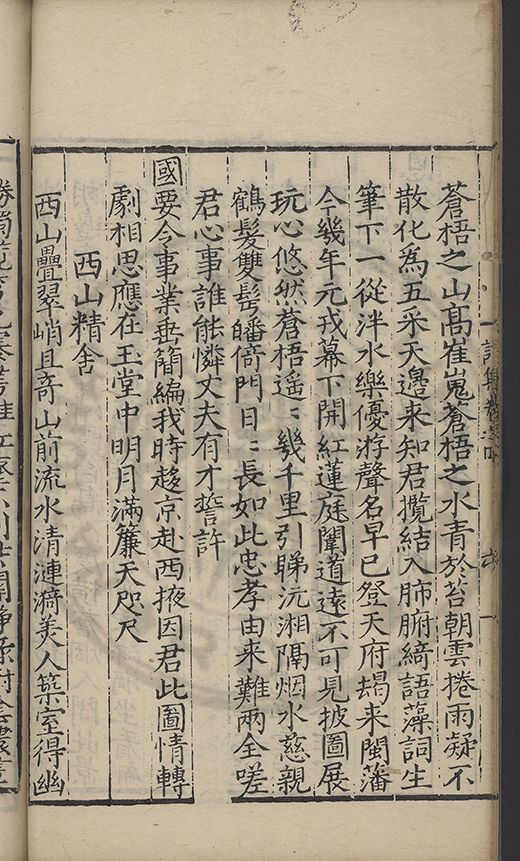 蒼梧之山髙崔嵬蒼梧之水青於苔朝雲捲雨凝不
散化為五采天邊来知君攬結入肺腑綺語藻詞生
筆下一從泮水樂優游聲名早已登天府朅来閩藩
今幾年元戎幕下開紅蓮庭闈道遠不可見披圖展
玩心悠然蒼梧遥〻幾千里引睇沅湘隔烟水慈親
鶴髮雙鬓皤倚門日〻長如此忠孝由来難兩全嗟
君心事誰能憐丈夫有才誓許
國要令事業垂簡編我時趍京赴西掖因君此圖情轉
劇相思應在玉堂中明月滿簾天咫尺
西山精舍
西山疊翠峭且奇山前流水清漣漪美人築室得幽